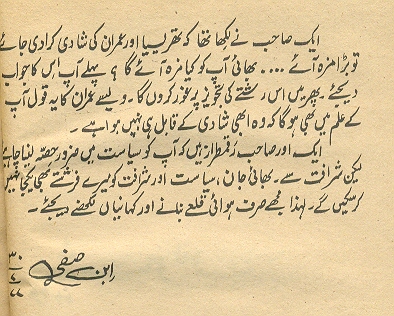 ایک صاحب نے لکھا تھا کہ تھریسیا اور عمران کی شادی کرادی جائے
تو بڑا مزہ آئے .... بھائی آپ کو کیا مزہ آئے گا ؟ پہلے آپ اس کا جواب
دیجئے۔ پھر میں اس رشتے کی تجویز پر غور کروں گا۔ ویسے عمران کا یہ قول آپ
کے علم میں بھی ہوگا کہ وہ ابھی شادی کے قابل ہی نہیں ہوا ہے۔
ایک اور صاحب رقمطراز ہیں کہ آپ کو سیاست میں ضرور حصہ لینا چاہئے
لیکن شرافت سے۔ بھائی جان ، سیاست اور شرافت کو میرے فرشتے بھی یکجا نہیں
کرسکیں گے۔ لہٰذا مجھے صرف ہوائی قلعے بنانے اور کہانیاں لکھنے دیجئے۔
ابن صفی
۳۰
۷
۷۷